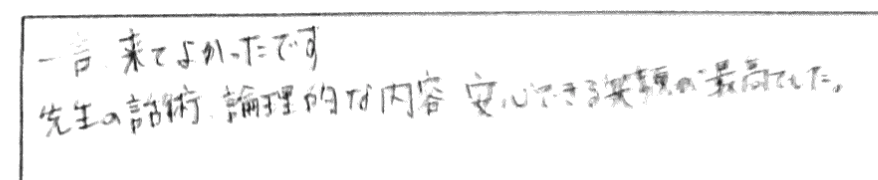 一言、来てよかったです
先生の話術、論理的な内容 安心できる笑顔が最高でした。